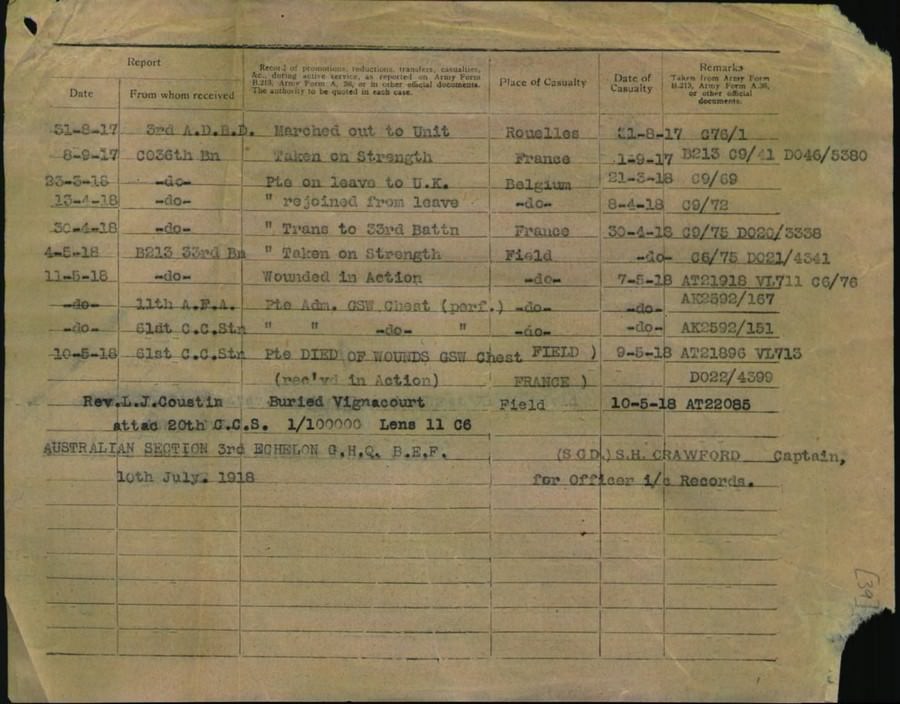 Report
Record of promotions, reductions, transfers, casualties, &c., during active service, as reported on Army Form B.213, Army Form A. 36, or in other official documents. The authority to be quoted in each case.
Place of Casualty
Date of Casualty
Remarks
Taken from Army Form B.213, Army Form A.36, or other official documents.
Date From whom received
31-8-17 3rd A.D.B.D. Marched out to Unit Rouelles 31-8-17 C76/1
8-9-17 CO36th Bn Taken on Strength France 1-9-17 B213 C9/41 DO46/5380
23-3-18 -do- Pte on leave to U.K. Belgium 21-3-18 C9/69
13-4-18 -do- " rejoined from leave -do- 8-4-18 C9/72
30-4-18 -do- " Trans to 33rd Battn France 30-4-18 C9/75 DO20/3338
4-5-18 B213 33rd Bn " Taken on Strength Field -do- C6/75 DO21/4341
11-5-18 -do- Wounded in Action -do- 7-5-18 AT21918 VL711 C6/76
-do- 11th A.F.A. Pte Adm. GSW Chest (perf.) -do- -do- AK2592/167
-do- 61dt C.C.Stn " " -do- " -do- -do- AK2592/151
10-5-18 61st C.C.Stn Pte DIED OF WOUNDS GSW Chest FIELD ) 9-5-18 AT21896 VL713
(rec'vd in Action) FRANCE ) DO22/4399
Rev.L.J.Coustin Buried Vignacourt Field 10-5-18 AT22085
attac 20th C.C.S. 1/100000 Lens 11 C6
AUSTRALIAN SECTION 3rd ECHELON G.H.Q. B.E.F. (SGD.) S.H. CRAWFORD Captain,
10th July. 1918 for Officer i/c Records.
[39]